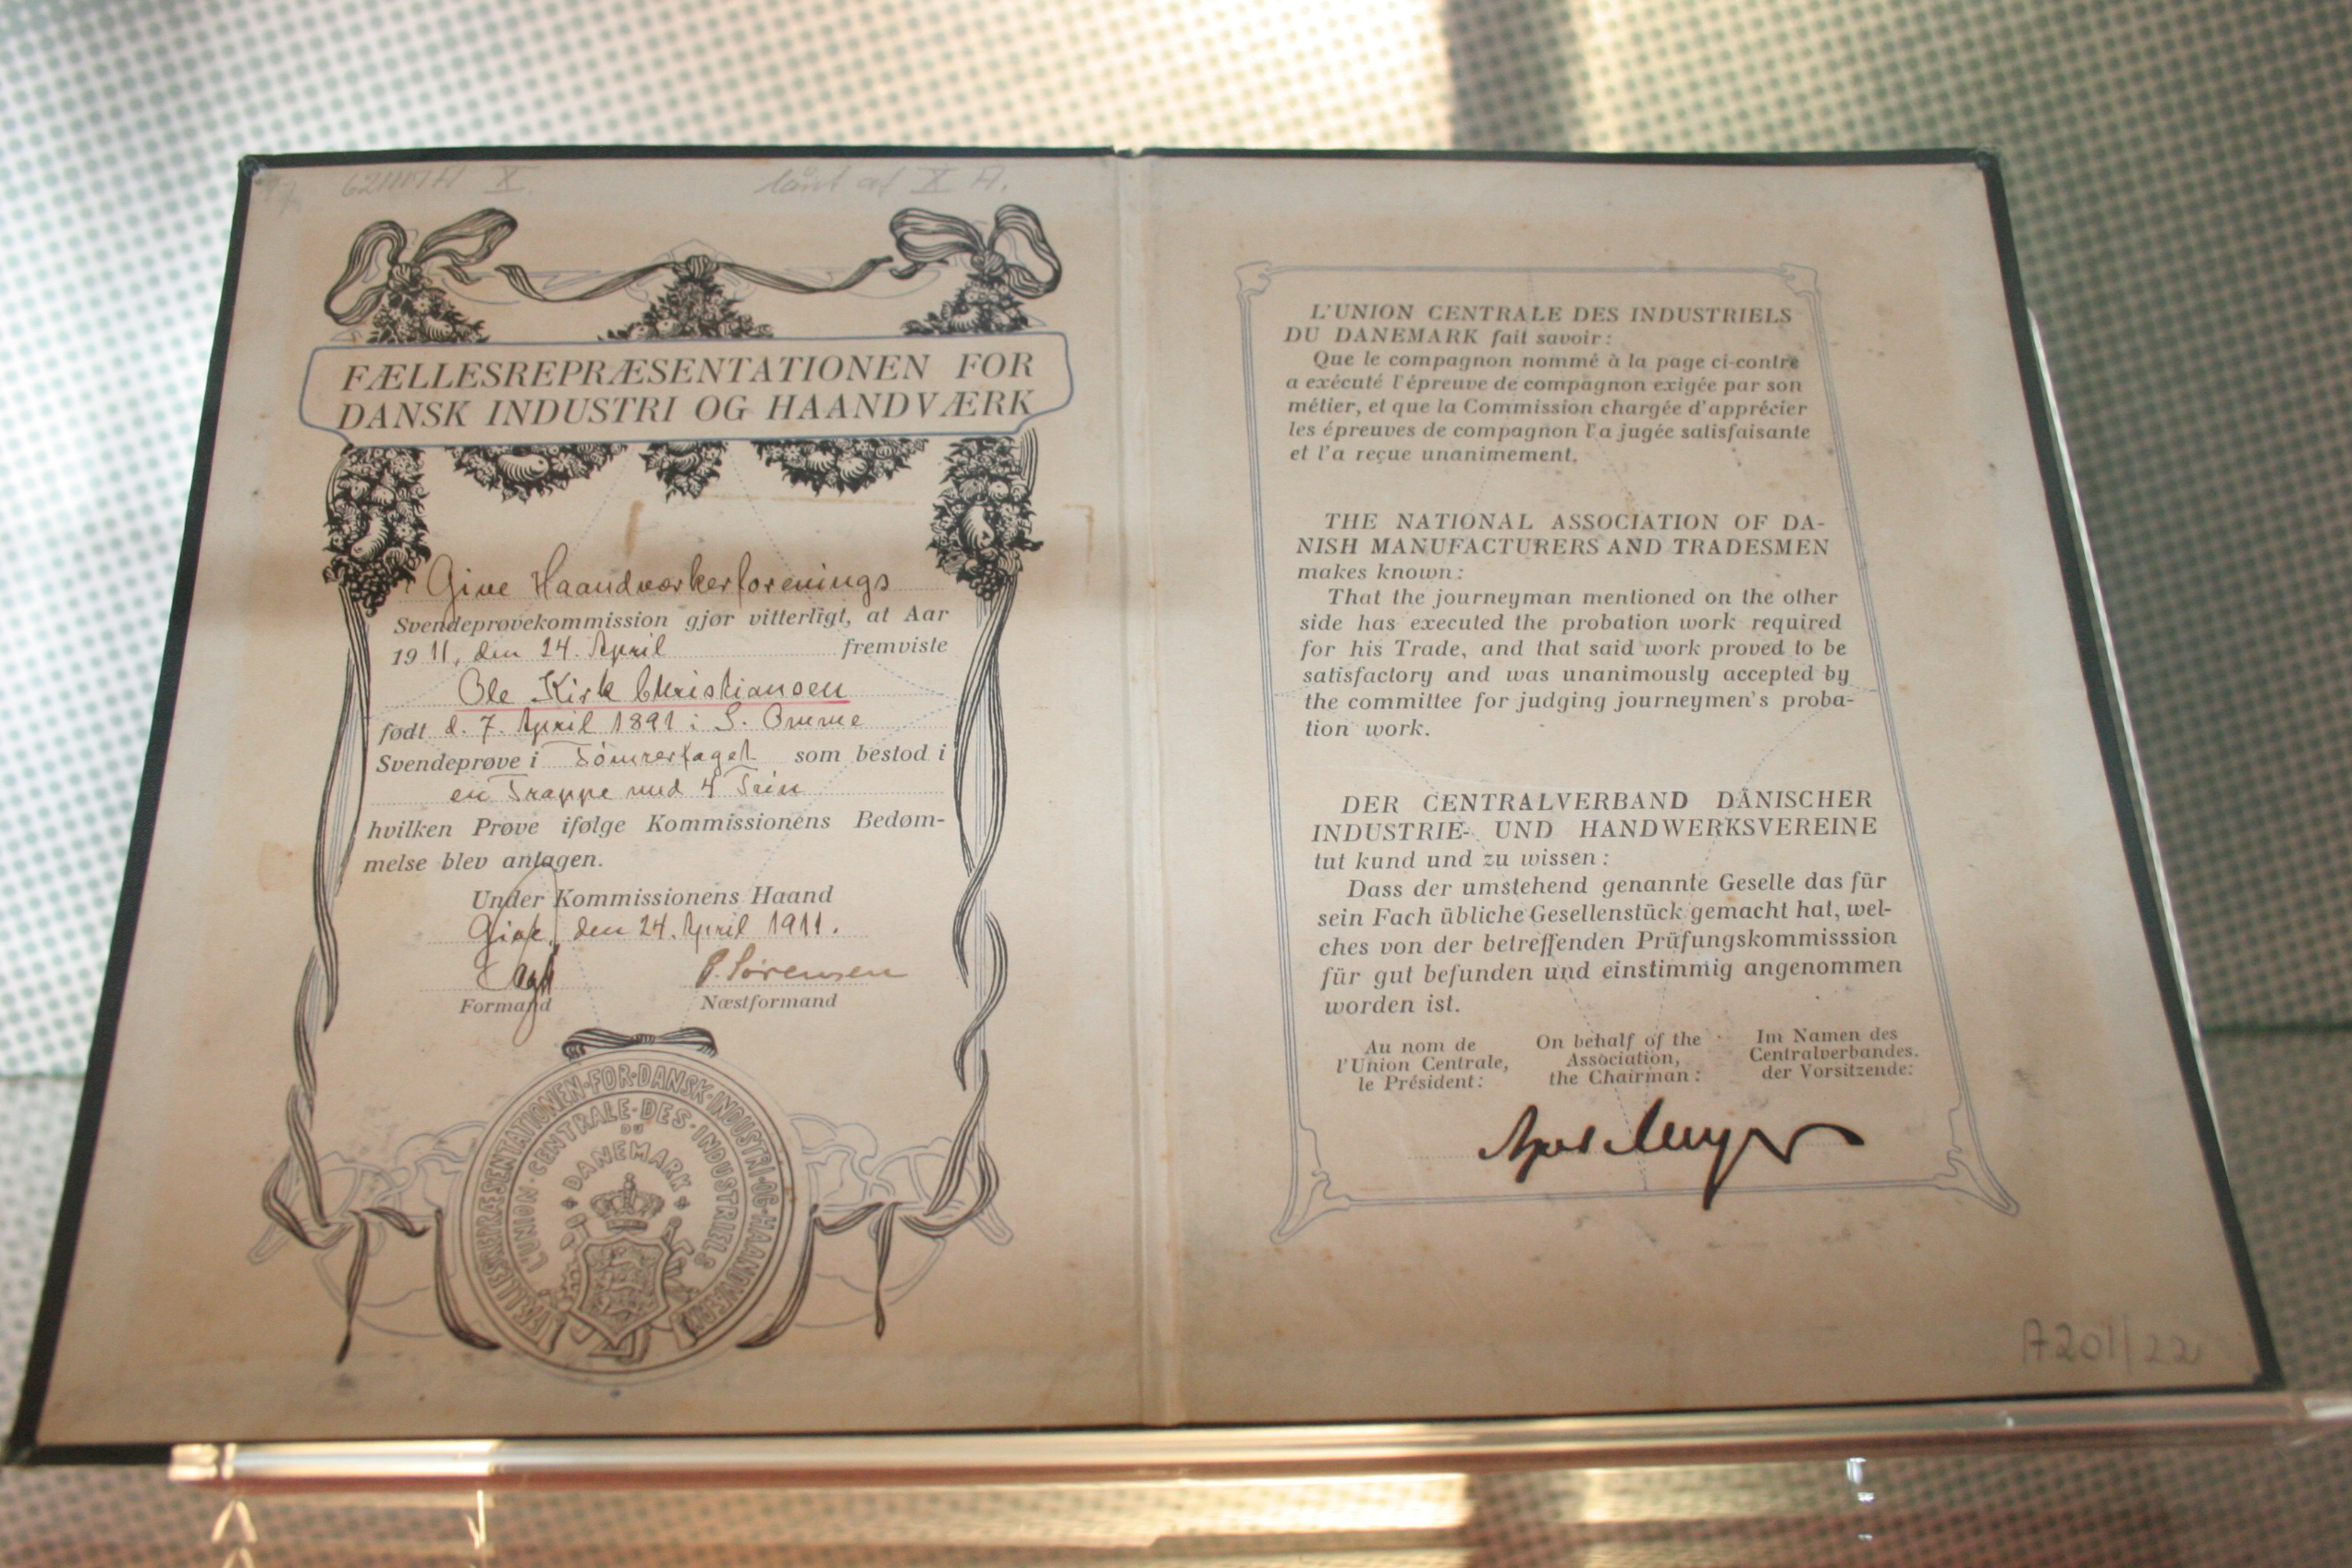 lånt af
FÆLLESREPRÆSENTATIONEN FOR
DANSK INDUSTRI OG HAANDVÆRK
Give Haandværkerforenings
Svendeprøvekommission gjør vitterligt, at Aar
1911, den 24. April fremviste
Ole Kirk Christiansen
født d. 7. April 1891 i S. Omme
Svendeprøve i Tømrerfaget som bestod i
en Trappe med 4 Trin
hvilken Prøve ifølge Kommissionens Bedøm-
melse blev antagen.
Under Kommissionens Haand
Give, den 24. April 1911.
P. Sørensen
Formand Næstformand
FÆLLESREPRÆSENTATIONEN·FOR·DANSK·INDUSTRI·OG·HAANDVÆRK
L'UNION·CENTRALE·DES·INDUSTRIELS
DU
DANEMARK
L'UNION CENTRALE DES INDUSTRIELS
DU DANEMARK fait savoir:
Que le compagnon nommé à la page ci-contre
a exécuté l'épreuve de compagnon exigée par son
métier, et que la Commission chargée d'apprécier
les épreuves de compagnon l'a jugée satisfaisante
et l'a reçue unanimement.
THE NATIONAL ASSOCIATION OF DA-
NISH MANUFACTURERS AND TRADESMEN
makes known:
That the journeyman mentioned on the other
side has executed the probation work required
for his Trade, and that said work proved to be
satisfactory and was unanimously accepted by
the committee for judging journeymen's proba-
tion work.
DER CENTRALVERBAND DÄNISCHER
INDUSTRIE- UND HANDWERKSVEREINE
tut kund und zu wissen:
Dass der umstehend genannte Geselle das für
sein Fach übliche Gesellenstück gemacht hat, wel-
ches von der betreffenden Prüfungskommisssion
für gut befunden und einstimmig angenommen
worden ist.
Au nom de
l'Union Centrale,
le Président:
On behalf of the
Association,
the Chairman:
Im Namen des
Centralverbandes.
der Vorsitzende:
A201/22